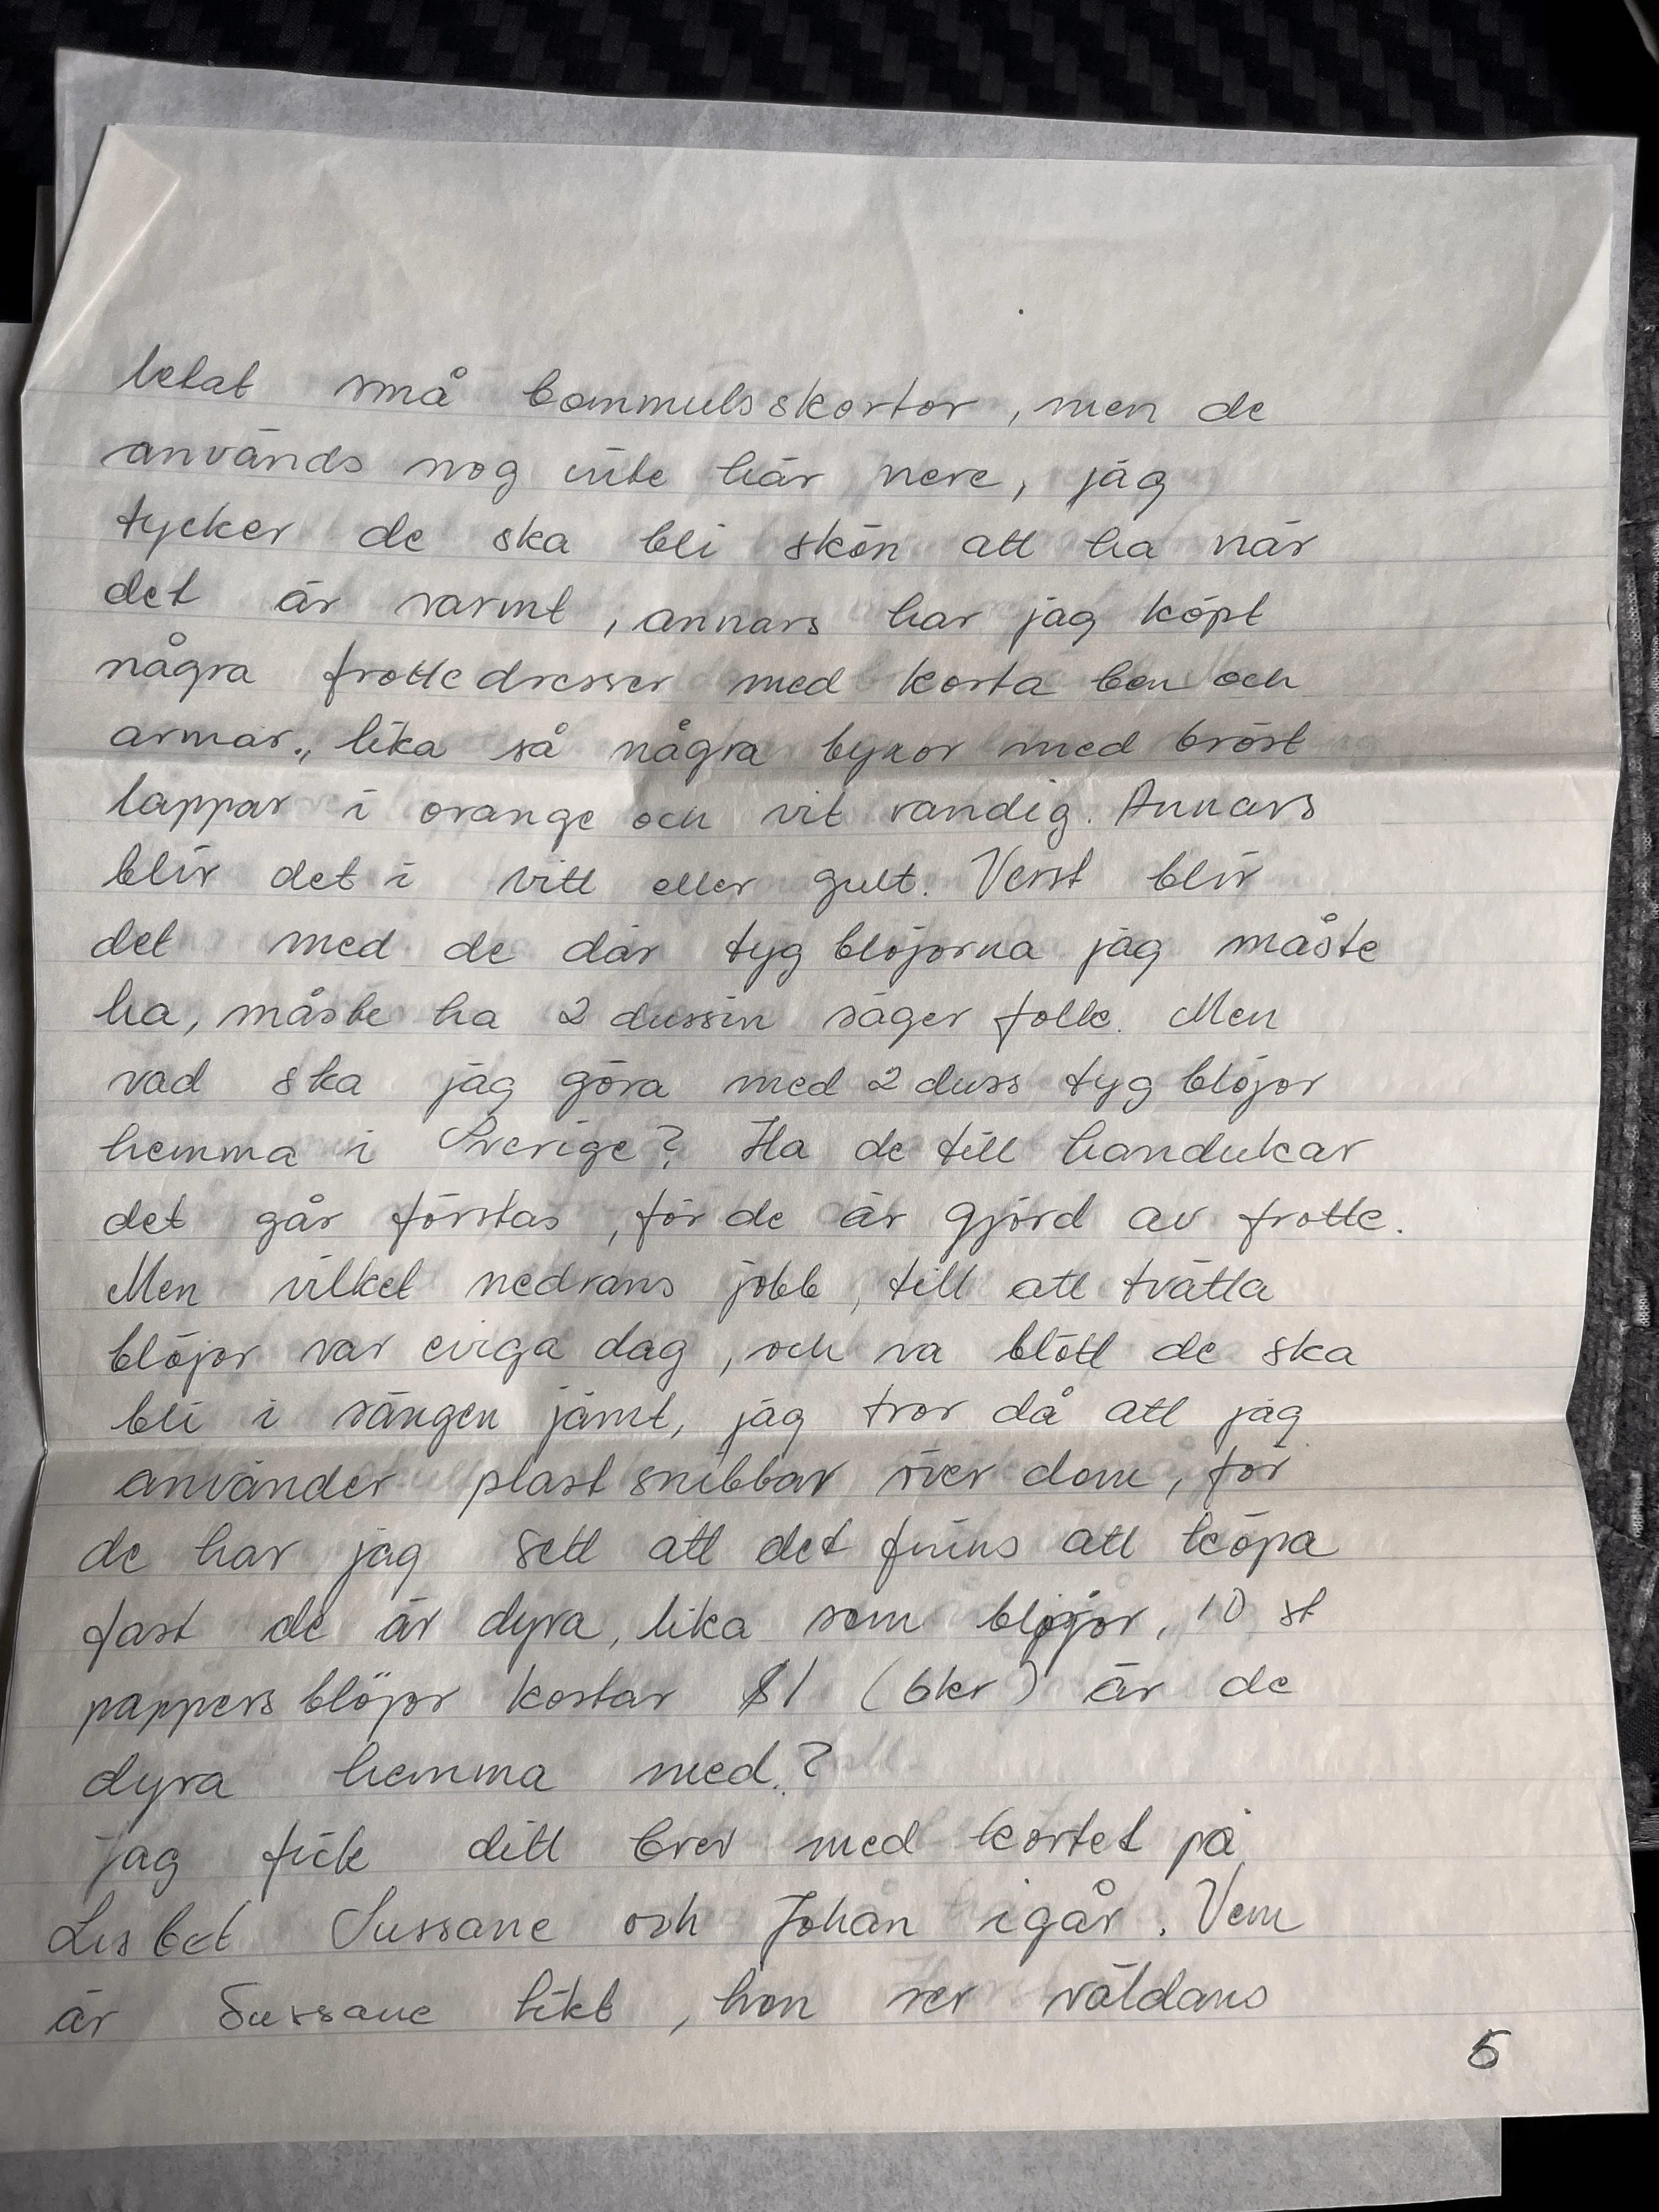 letat små bommulsskortor, men de
används nog inte här nere, jag
tycker de ska bli skön att ha när
det är varmt, annars har jag köpt
några frottedresser med korta ben och
armar., lika så några byxor med bröst
lappar i orange och vit randig. Annars
blir det i vitt eller gult. Verst blir
det med de där tyg blöjorna jag måste
ha, måste ha 2 dussin säger folk. Men
vad ska jag göra med 2 duss tyg blöjor
hemma i Sverige? Ha de till handukar
det går förstås, för de är gjord av frotte.
Men vilket nedrans jobb, till att tvätta
blöjor var eviga dag, och va blött de ska
bli i sängen jämt, jag tror då att jag
använder plast snibbar över dom, för
de har jag sett att det finns att köpa
fast de är dyra, lika som blöjor, 10 st
pappers blöjor kostar $1 (6kr) är de
dyra hemma med.?
jag fick ditt brev med kortet på
Lisbet Sussane och Johan igår. Vem
är Sussane likt, hon ser väldans
5